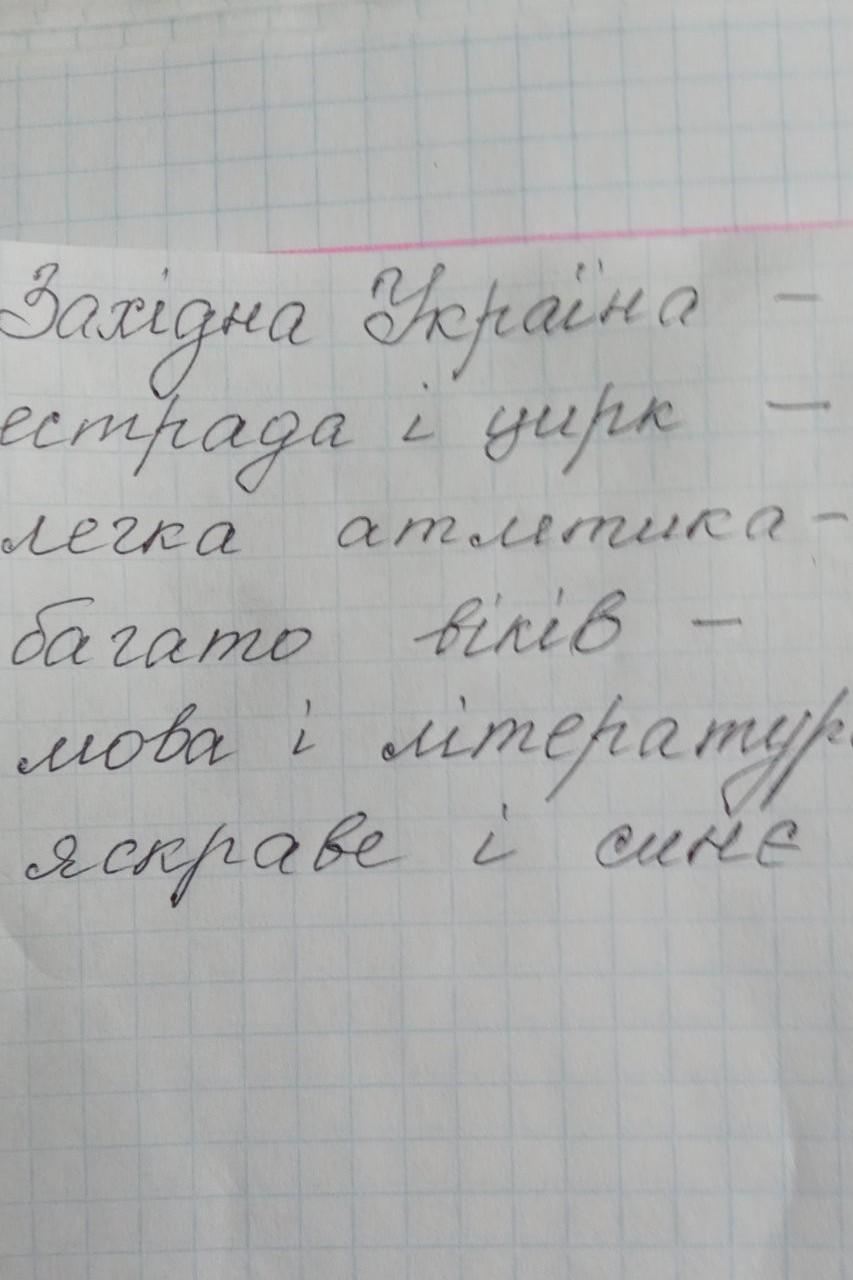 Західна Україна –
естрада і цирк –
легка атлетика –
багато віків –
мова і література
яскраве і синє